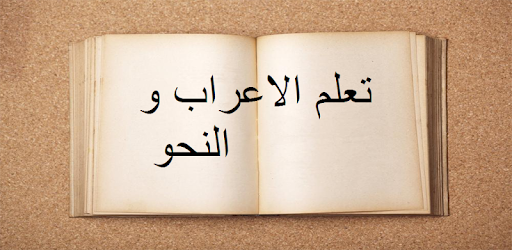 تعلم الاعراب و
النحو